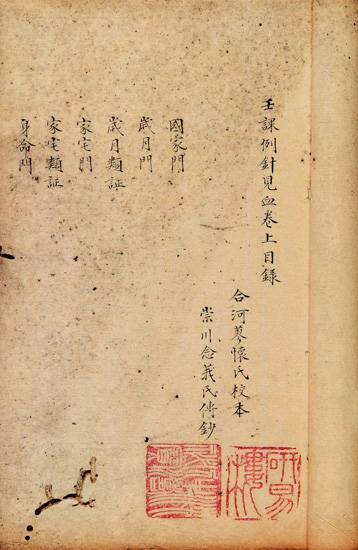 壬課例針見血卷上目錄
合河蓼懷氏校本
崇川念義氏傳鈔
國家門
歲月門
歲月類証
家宅門
家宅類証
身命門
研易樓